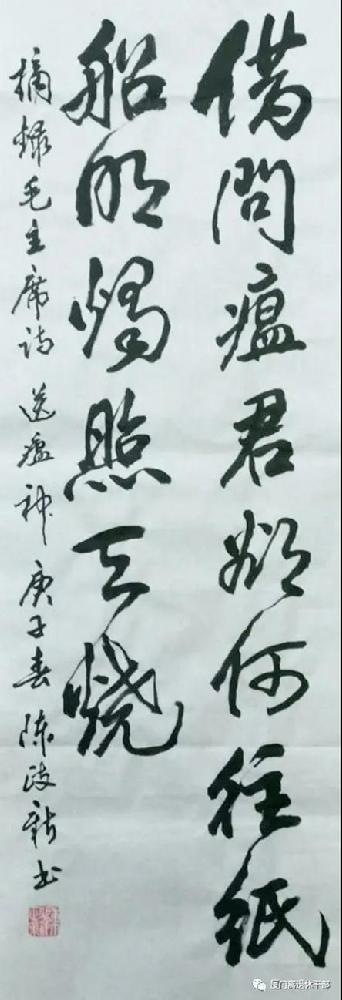 借問瘟君欲何往紙
船明燭照天燒
摘錄毛主席詩送瘟神庚子春陈政新书
厦门离退休干部